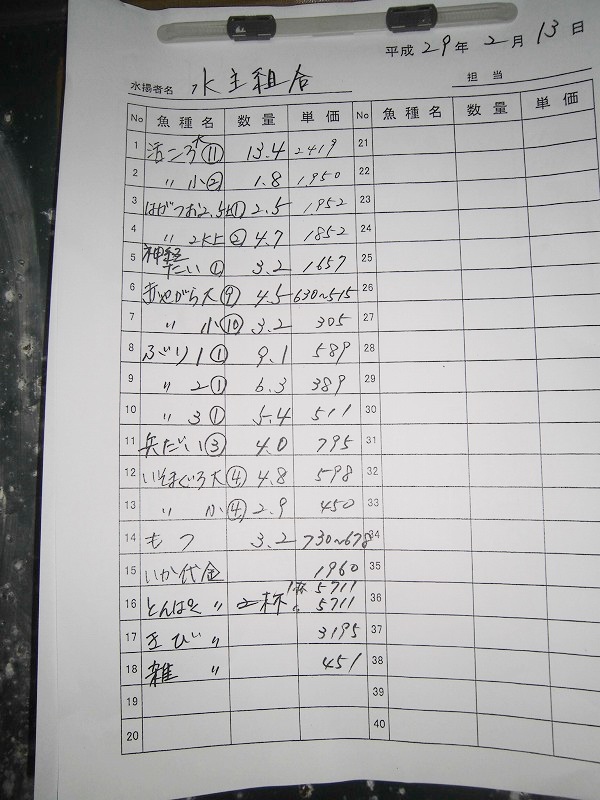 平成 29 年 2 月 13 日
水揚者名 水主組合 担当
No 魚種名 数量 単価 No 魚種名 数量 単価
1 活ころ大⑪ 13.4 2419 21
2 〃 小② 1.8 1950 22
3 はがつお2.5k① 2.5 1952 23
4 〃 2k上② 4.7 1852 24
5 神経たい① 3.2 1657 25
6 赤やがら大⑨ 4.5 630~515 26
7 〃 小⑩ 3.2 305 27
8 ぶり1① 9.1 589 28
9 〃 2① 6.3 389 29
10 〃 3① 5.4 511 30
11 兵だい③ 4.0 795 31
12 いそまぐろ大④ 4.8 598 32
13 〃 小④ 2.9 450 33
14 もつ 3.2 730~678 34
15 いか代金 1960 35
16 とんぼ 〃 2杯 1杯 5711 5711 36
17 きび 〃 3195 37
18 雑 〃 451 38
19 39
20 40